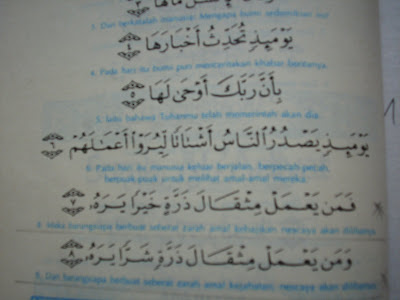 مَا لَهَا ٣
3. Dan berkatalah manusia: Mengapa bumi
يَوْمَئِذٍ تُحَدِّثُ أَخْبَارَهَا ٤
4. Pada hari itu bumi pun menceritakan khabar beritanya.
بِأَنَّ رَبَّكَ أَوْحَىٰ لَهَا ٥
5. bahawa Tuhanmu telah memerintah akan dia.
يَوْمَئِذٍ يَصْدُرُ ٱلنَّاسُ أَشْتَاتًا لِيُرَوْا أَعْمَٰلَهُمْ ٦
6. Pada hari itu manusia keluar berjalan, berpecah-pecah,
untuk melihat amal-amal mereka.
فَمَن يَعْمَلْ مِثْقَالَ ذَرَّةٍ خَيْرًا يَرَهُۥ ٧
Maka barangsiapa berbuat seberat zarah amal kebajikan nescaya akan dilihatnya
وَمَن يَعْمَلْ مِثْقَالَ ذَرَّةٍ شَرًّا يَرَهُۥ ٨
8. Dan barangsiapa berbuat seberat zarah amal kejahatan, nescaya akan dilihatnya